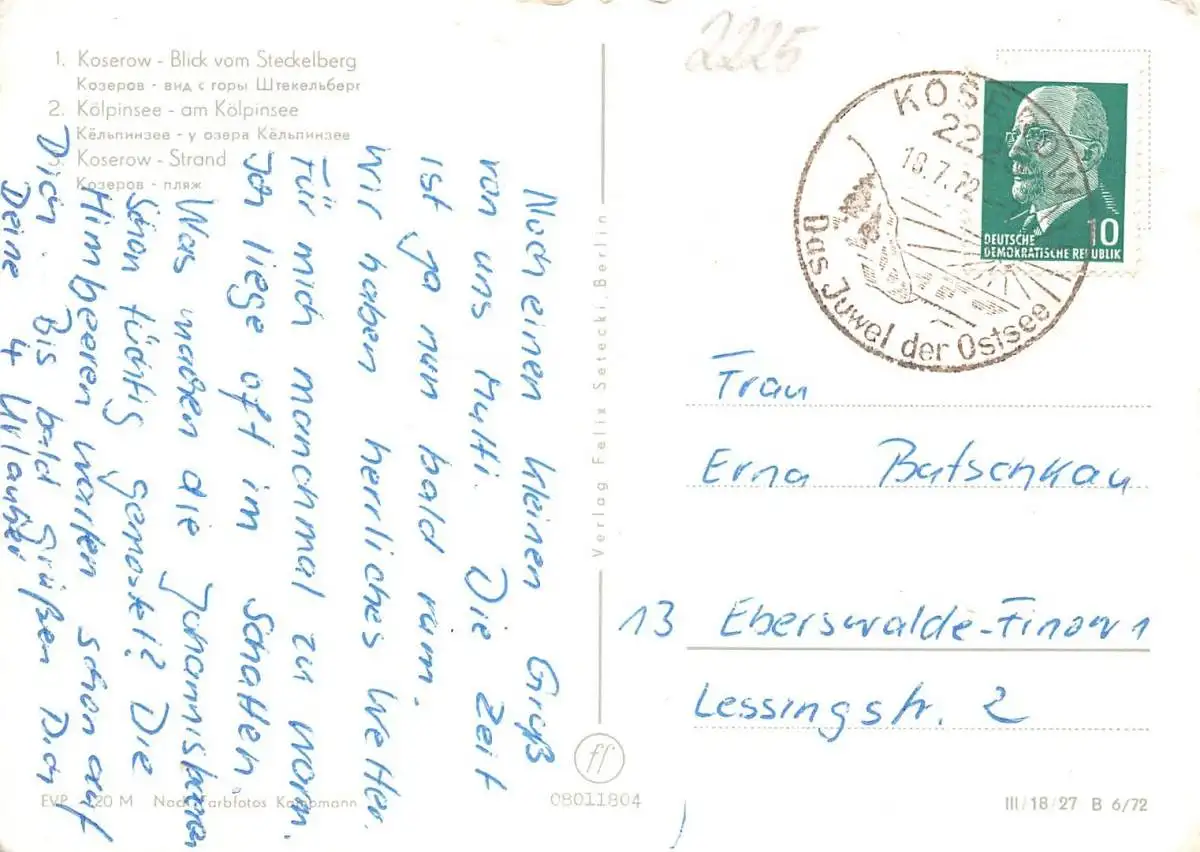 2225
1. Koserow - Blick vom Steckelberg
Козеров - вид с горы Штекельберг
2. Kölpinsee - am Kölpinsee
Кёльпинзее - у озера Кёльпинзее
Koserow - Strand
Козеров - пляж
Noch einen kleinen Gruß
von uns Mutti. Die Zeit
ist ja nun bald rum.
Wir haben herrliches Wetter.
Für mich manchmal zu warm.
Ich liege oft im Schatten.
Was machen die Johannisbeeren
schon tüchtig gemostet? Die
Himbeeren warten schon auf
Dich. Bis bald grüßen Dich
Deine 4 Urlauber
Verlag Felix Setecki, Berlin
KOSEROW
222
18.7.72
Das Juwel der Ostsee
10
DEUTSCHE
DEMOKRATISCHE REPUBLIK
Frau
Erna Batschkau
13 Eberswalde-Finow 1
Lessingstr. 2
EVP 20 M Nach Farbfotos Kampmann
ff
08011804
III/18/27 B 6/72